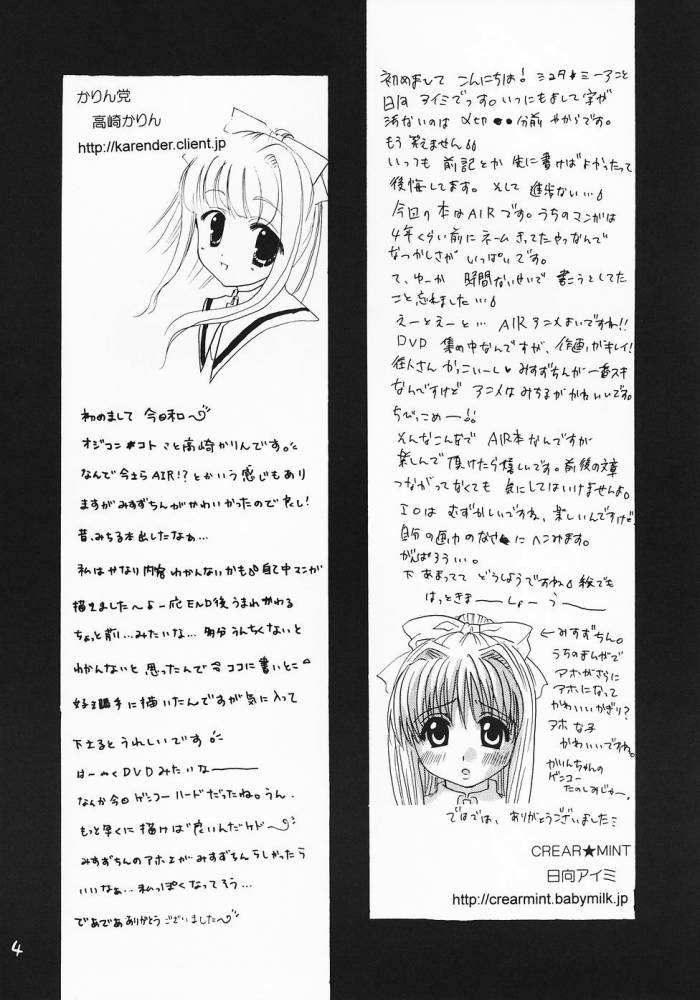 初めまして こんにちは! ミュタ★ミーアこと
日向 アイミでっす。いつにもまして字が
汚ないのは 〆切●●分前 やからです。
もう 笑えません
いっつも 前記とか 先に書けばよかったって
後悔してます。そして 進歩ない…
今回の本はAIRです。うちのマンガは
4年くらい前にネーム きってたやつなんで
なつかしさが いっぱいです。
て、ゆーか 時間ないせいで 書こうとしてた
こと忘れました…
えーとえーと… AIRアニメよいですね!!
DVD 集め中なんですが、作画がキレイ!
往人さん かっこいーし♥ みすずちんが一番スキ
なんですけど アニメは みちるがかわいいです。
ちびっこめー!!
そんなこんなで AIR本なんですが
楽しんで 頂けたら嬉しいです。前後の文章
つながってなくても 気にしてはいけませんよ。
IOは むずかしいですね、楽しいんですけど
自分の画力のなさに ヘこみます。
がんばろうぃ。
下 あまってて どうしようですね 絵でも
はっときまーーしょーうー
←みすずちん。
うちのまんがで
アホがさらに
アホになって
かわいいかぎり?
アホな子
かわいいですね。
かりんちゃんの
ゲンコー
たのしみじゃー。
ではでは、ありがとうございました
CREAR★MINT
日向アイミ
http://crearmint.babymilk.jp
かりん党
高崎かりん
http://karender.client.jp
初めまして 今日和
オジコン コト さと高崎かりんです。
なんで今さらAIR!?とかいう感じもあり
ますがみすずちんがかわいかったので良し!
昔、みちる本出したなぁ…
私はかなり内容わかんないかも 自己中マンガ
描きました〜よ 一応END後うまれかわる
ちょっと前…みたいな… 多分うんちくないと
わかんないと思ったんで今ココに書いとこ
好き勝手に描いたんですが気に入って
下さるとうれしいです。
はーやくDVDみたいなーーー
なんか今回ゲンコーハードだったね。うん。
もっと早くに描けば良いんだケド
みすずちんのアホ上がみすずちんらしかったら
いいなぁ…私っぽくなってそう…
であであありがとうございました
4